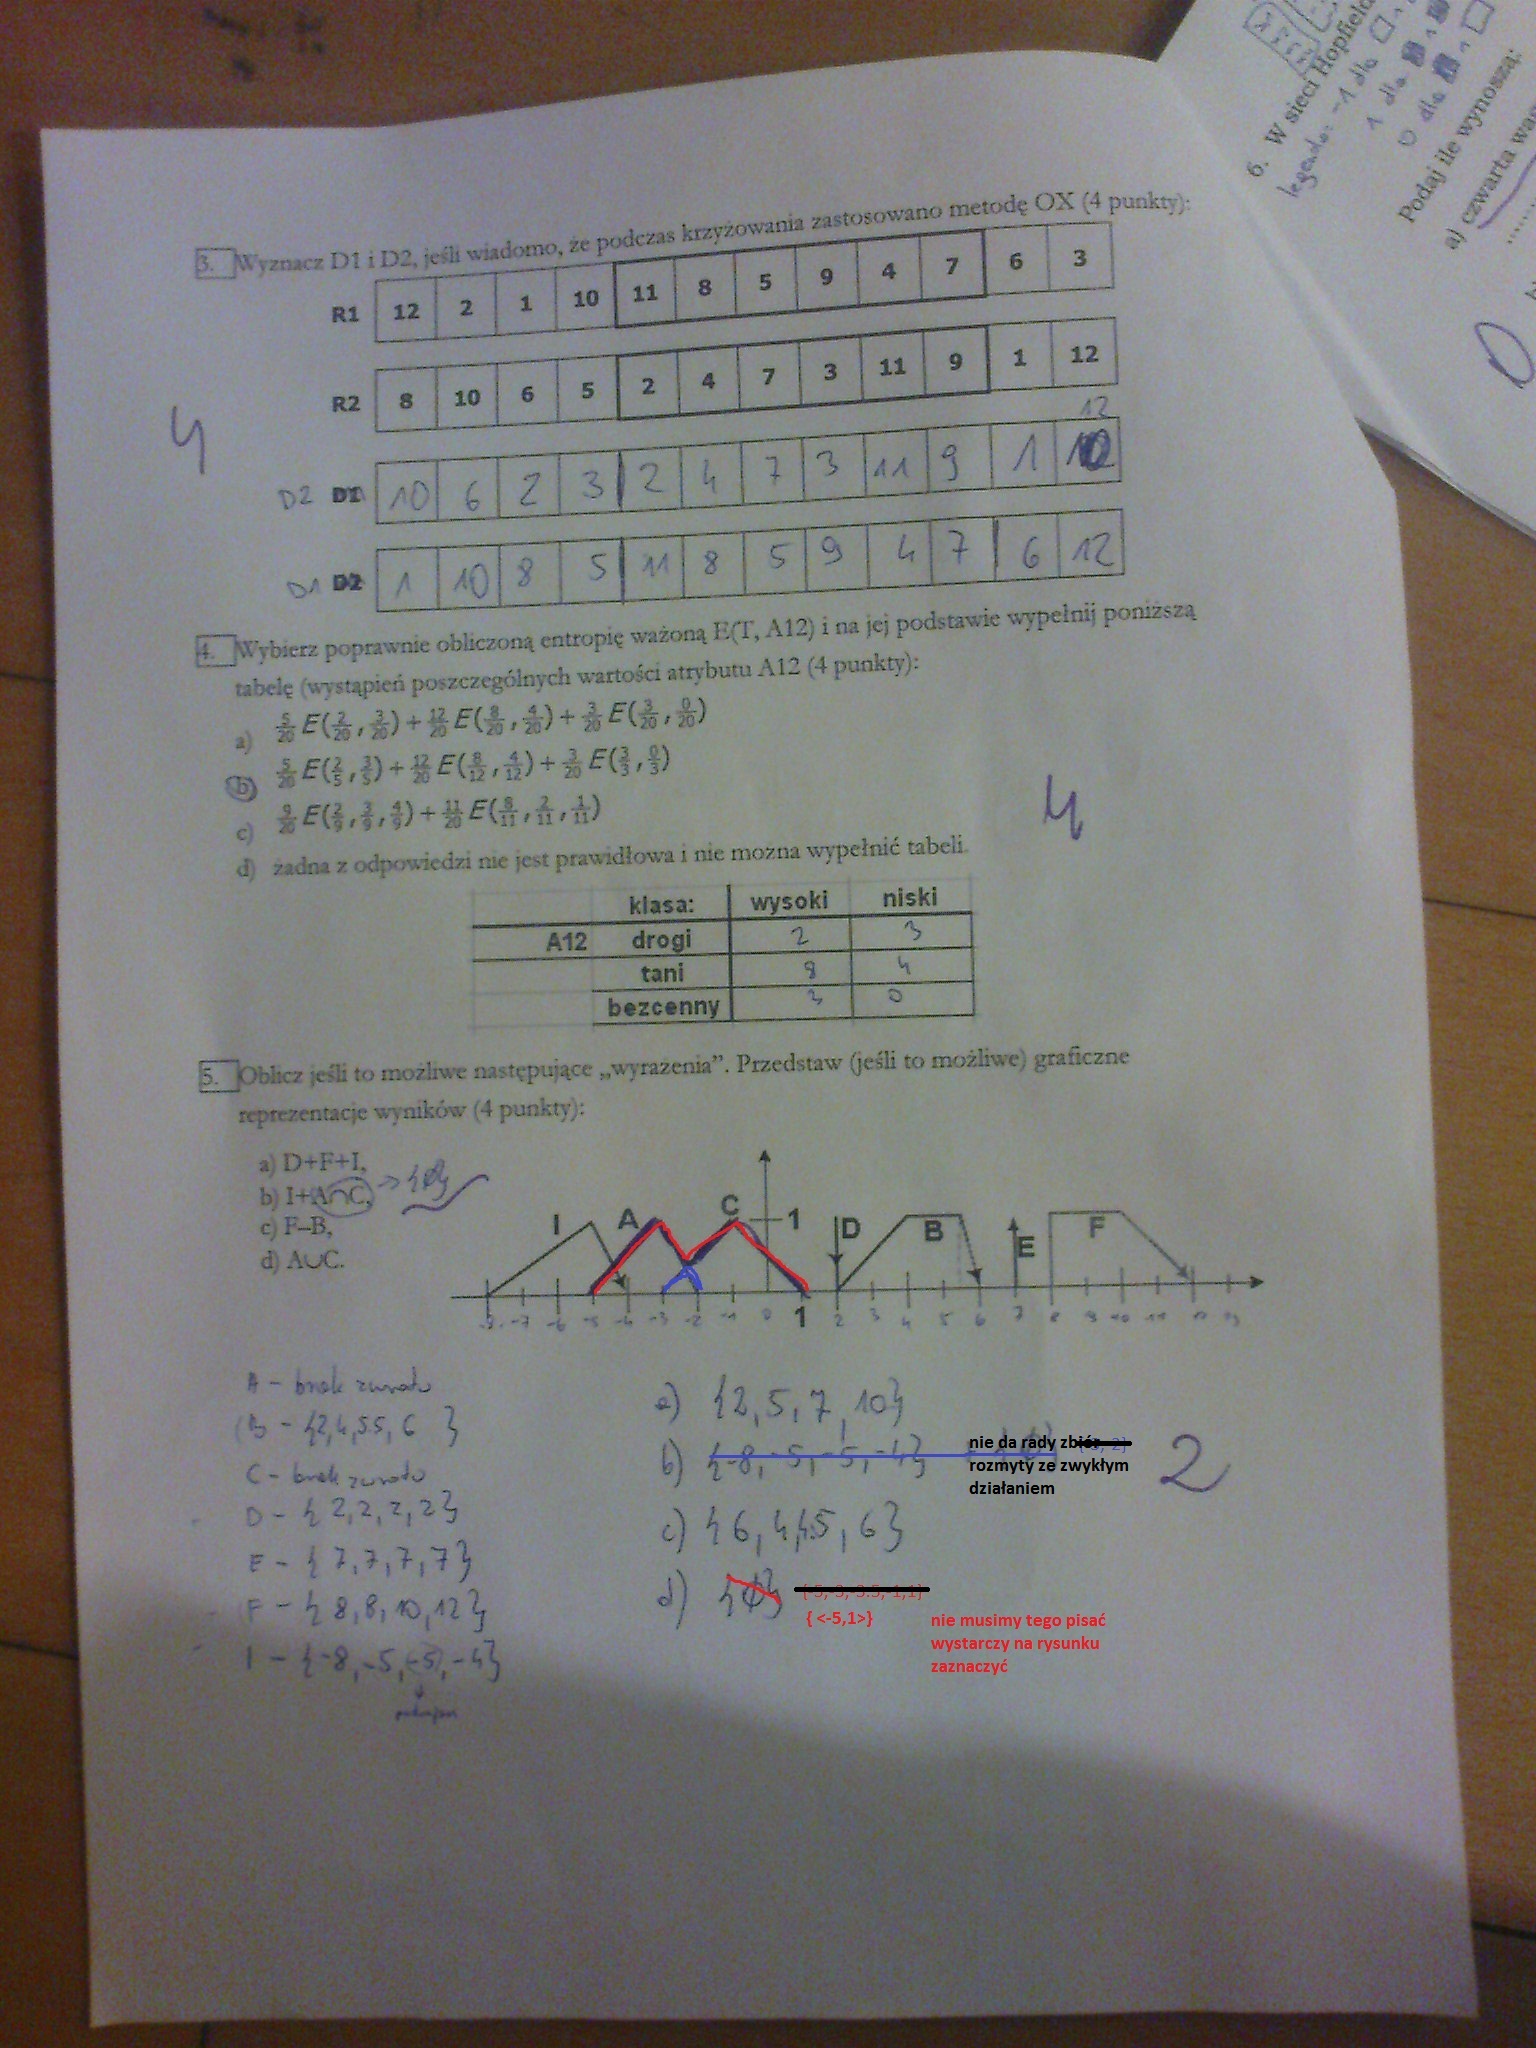 3. Wyznacz D1 i D2, jeśli wiadomo, że podczas krzyżowania zastosowano metodę OX (4 punkty):
R1 12 2 1 10 11 8 5 9 4 7 6 3
R2 8 10 6 5 2 4 7 3 11 9 1 12
4
12
D2 10 6 2 3 2 4 7 3 11 9 1
D1 D2 1 10 8 5 11 8 5 9 4 7 6 12
4. Wybierz poprawnie obliczoną entropię ważoną E(T, A12) i na jej podstawie wypełnij poniższą
tabelę (wystąpień poszczególnych wartości atrybutu A12 (4 punkty):
a) 5/20 E(2/20, 3/20) + 12/20 E(8/20, 4/20) + 3/20 E(3/20, 0/20)
b) 5/20 E(2/5, 3/5) + 12/20 E(8/12, 4/12) + 3/20 E(3/3, 0/3)
c) 9/20 E(2/9, 3/9, 4/9) + 11/20 E(8/11, 2/11, 1/11)
4
d) żadna z odpowiedzi nie jest prawidłowa i nie można wypełnić tabeli.
klasa: wysoki niski
A12 drogi 2 3
tani 8 4
bezcenny 3 0
5. Oblicz jeśli to możliwe następujące „wyrażenia”. Przedstaw (jeśli to możliwe) graficzne
reprezentacje wyników (4 punkty):
a) D+F+I,
b) I+A∩C, → {Ø}
c) F–B,
d) A∪C.
I A C 1 D B E F
-8 -7 -6 -5 -4 -3 -2 -1 0 1 2 3 4 5 6 7 8 9 10 11 12 13
A - brak zwrotu
B - {2,4,5.5, 6 }
C - brak zwrotu
D - { 2,2,2,2}
E - { 7,7,7,7}
F - { 8,8,10,12}
I - {-8,-5,(-5),-4}
a) {2,5,7,10}
b) {-8,-5,-5,-4} + {Ø}
nie da rady zbiór
rozmyty ze zwykłym
działaniem
2
c) {6,4,4.5,6}
d) {Ø} {-5,-3,-3.5,-1,1}
{ <-5,1>}
nie musimy tego pisać
wystarczy na rysunku
zaznaczyć
6. W sieci Hopfield
legenda: -1 dla
1 dla
0 dla
Podaj ile wynoszą:
a) czwarta